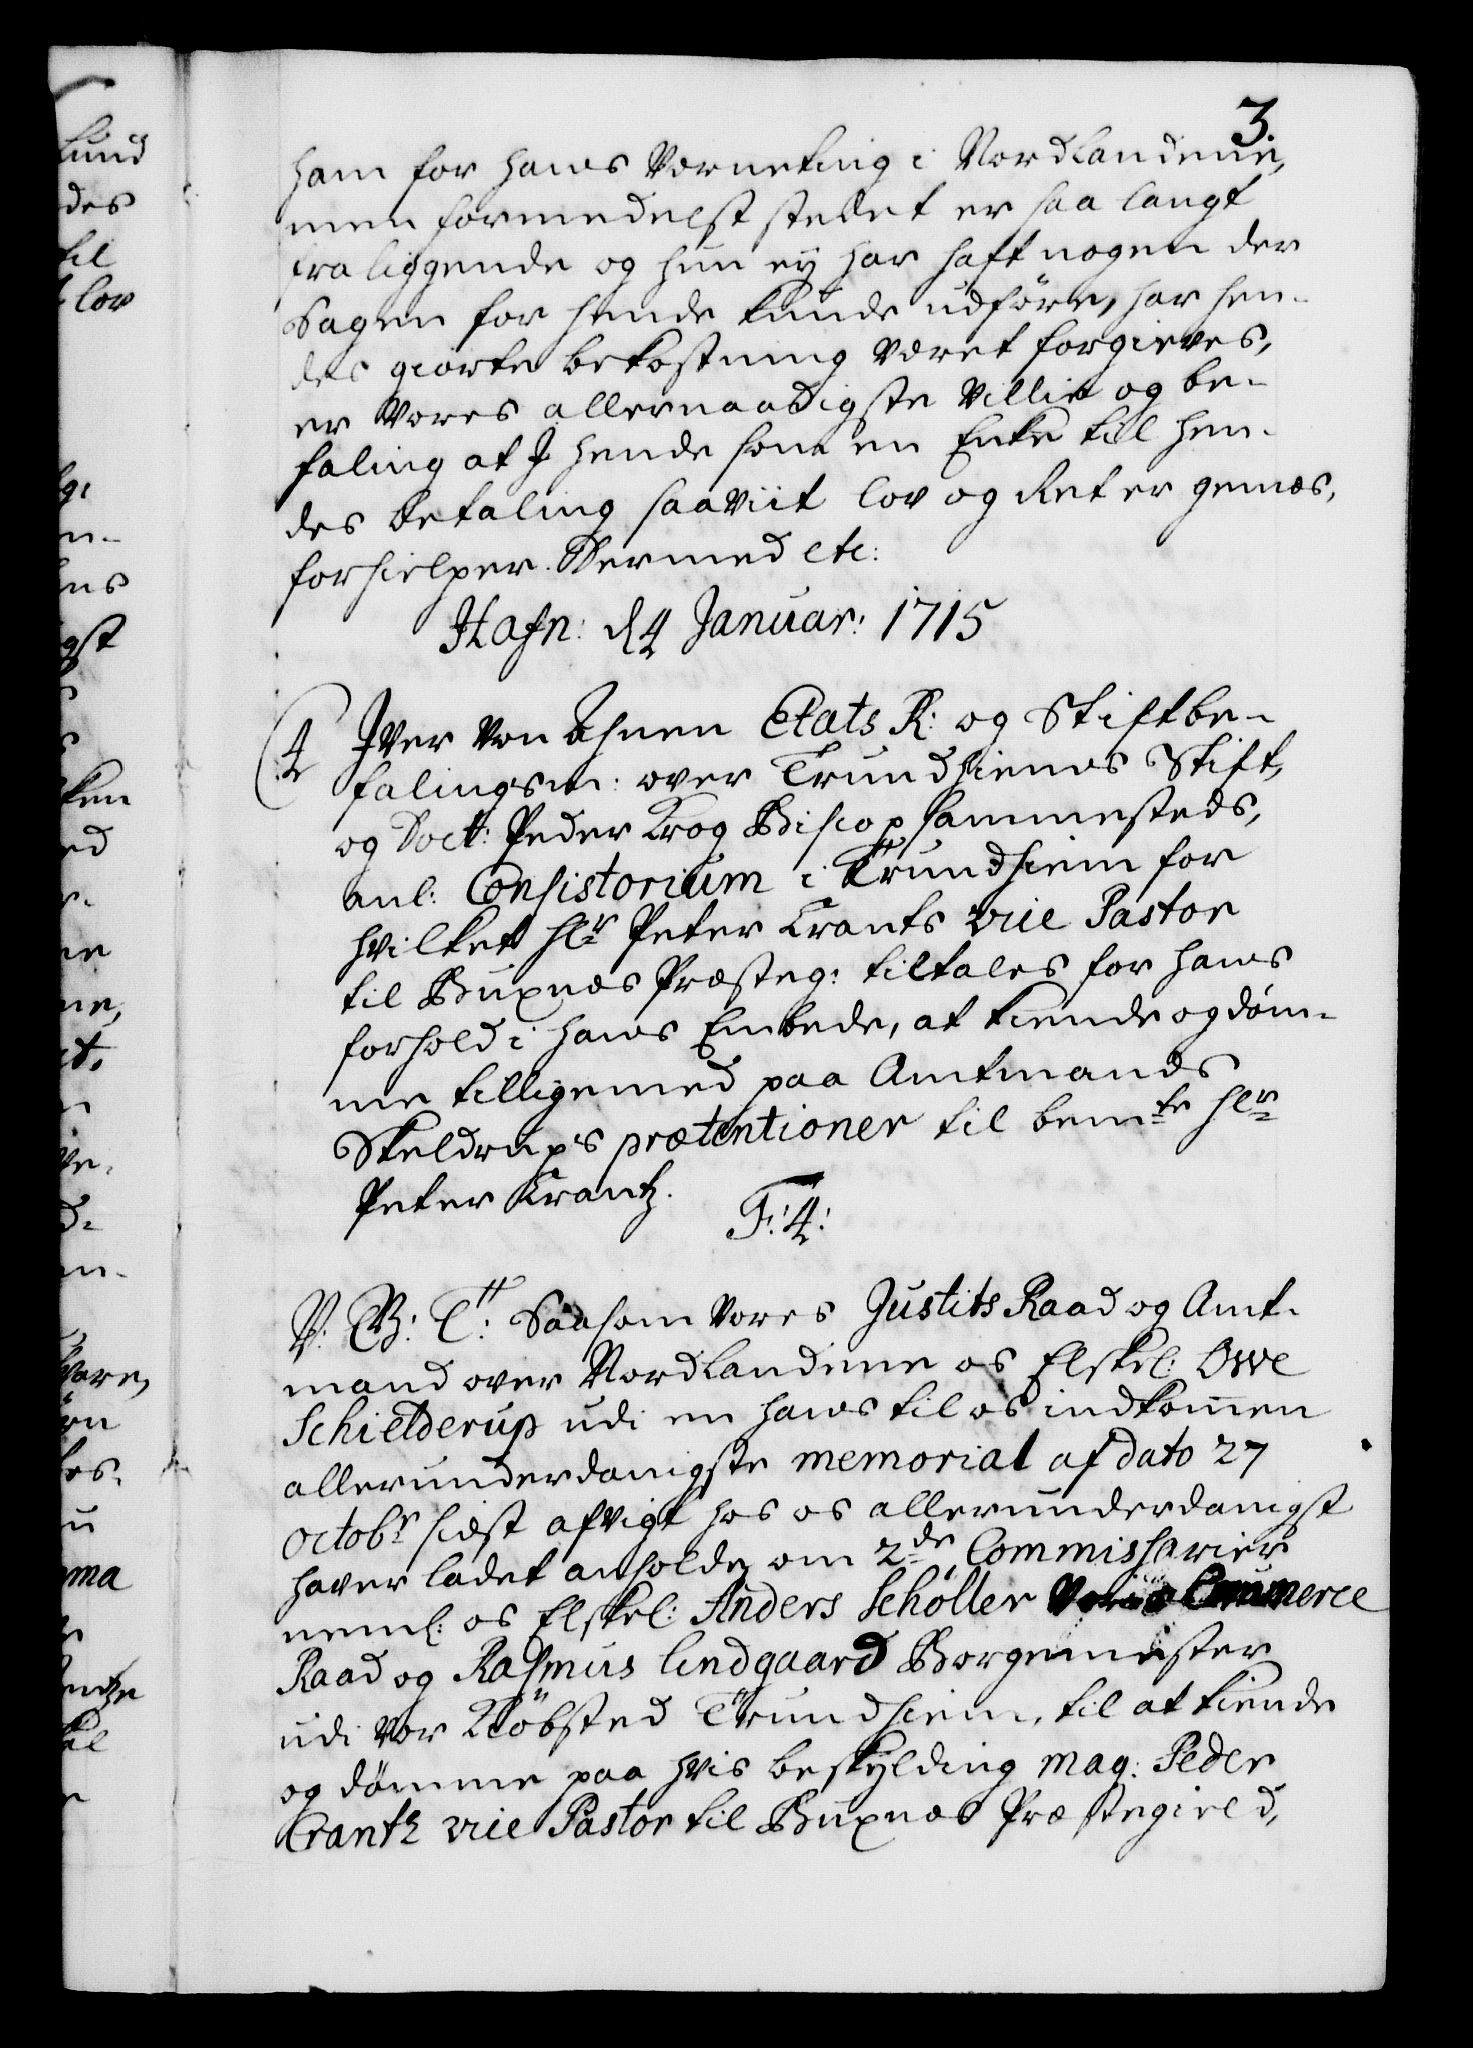 3.
ham for hans Værneting i Nordlandene,
men formedelst stedet er saa langt
fraliggende og hun ey har haft nogen der
Sagen for hende kunde udföre, har hen-
des giorte bekostning været forgieves,
er Vores allernaadigste Villie og be-
faling at I hende som en Enke til hen-
des betaling saaviit lov og Ret er gemæs,
forhielper. Dermed etc:
Hafn: d 4 Januar: 1715
4 Iver von Ahnen Etats R: og Stiftbe-
falingsm: over Trundhiems Stift,
og Doct: Peder Krog Biscop sammesteds,
anl: Consistorium i Trundhiem for
hvilket Hr Peter Krants vice Pastor
til Buxnes Præsteg: tiltales for hans
forhold i hans Embede, at kiende og döm-
me tilligemed paa Amtmands
Skeldrups prætentioner til bemte Hr
Peter Krantz.
F: 4:
V. G: T: Saasom Vores Justits Raad og Amt-
mand over Nordlandene os Elskel: Owe
Schielderup udi en hans til os indkommen
allerunderdanigste memorial af dato 27
octobr sidst afvigt hos os allerunderdanigst
haver ladet anholde om 2de Commissarier
neml: os Elskel: Anders Schöller Vores Commerce
Raad og Rasmus lindgaard Borgemester
udi vor Kiöbsted Trundhiem, til at kiende
og dömme paa hvis beskylding Mag: Peder
Crantz vice Pastor til Buxnes Præstegield,
til
lov
ken
ed
vare,
ma